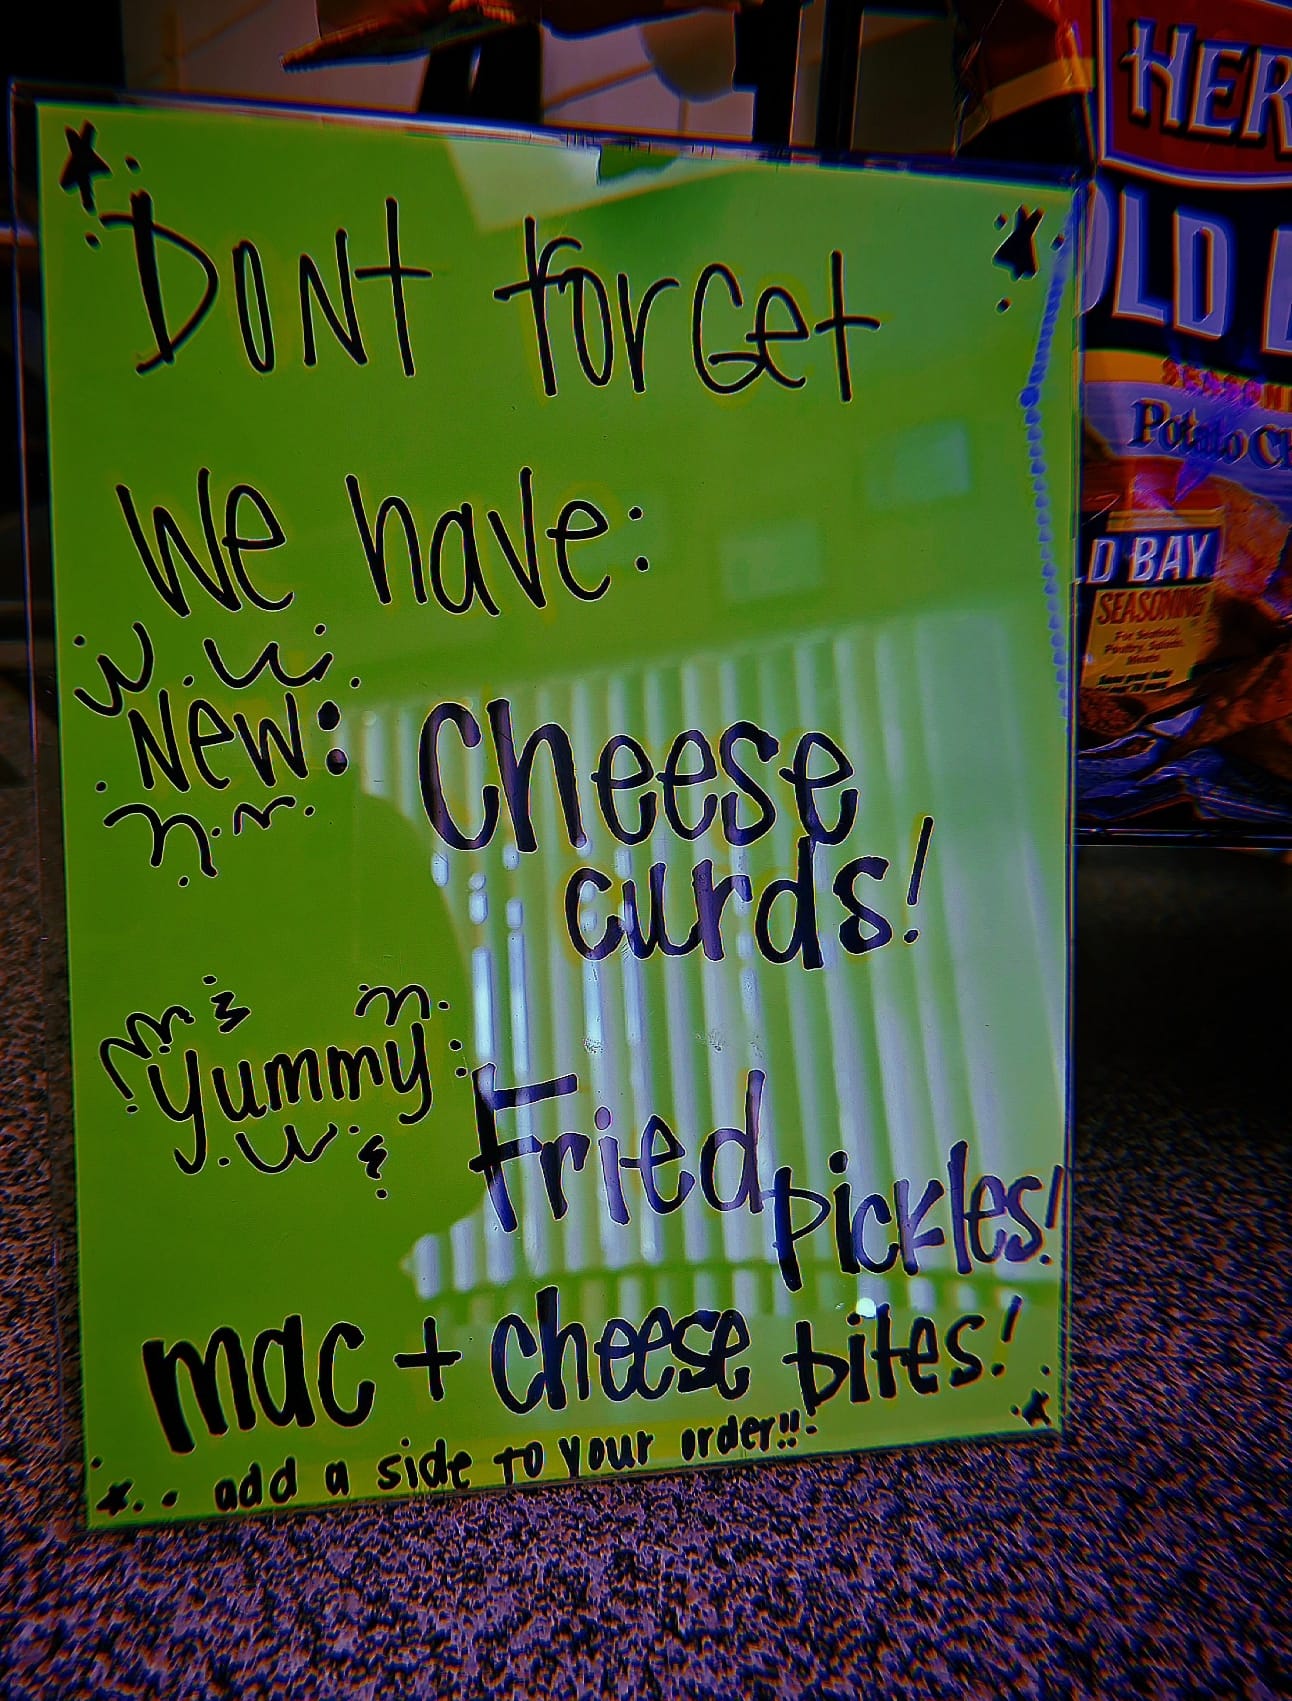 Dont forget
We have:
New: Cheese
curds!
Yummy: Fried
pickles!
mac + cheese bites!
add a side to your order!!
HER
OLD B
SEASON
Potato Ch
D BAY
SEASONING
For Seafood,
Poultry, Salads,
Meats